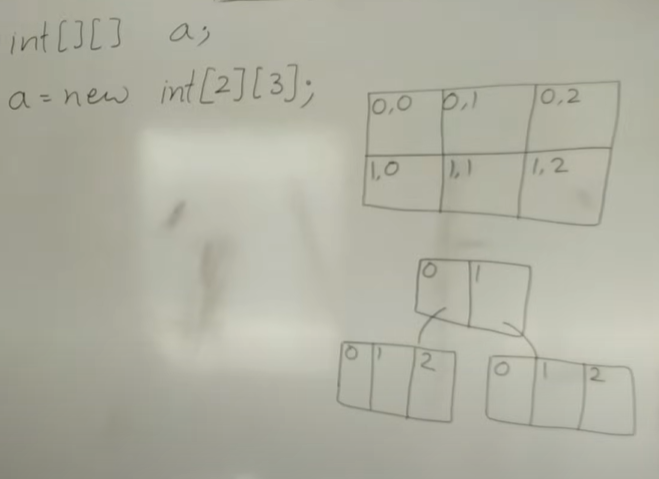 int[][] a;
a = new int[2][3];
0,0 0,1 0,2
1,0 1,1 1,2
0 1
0 1 2 0 1 2